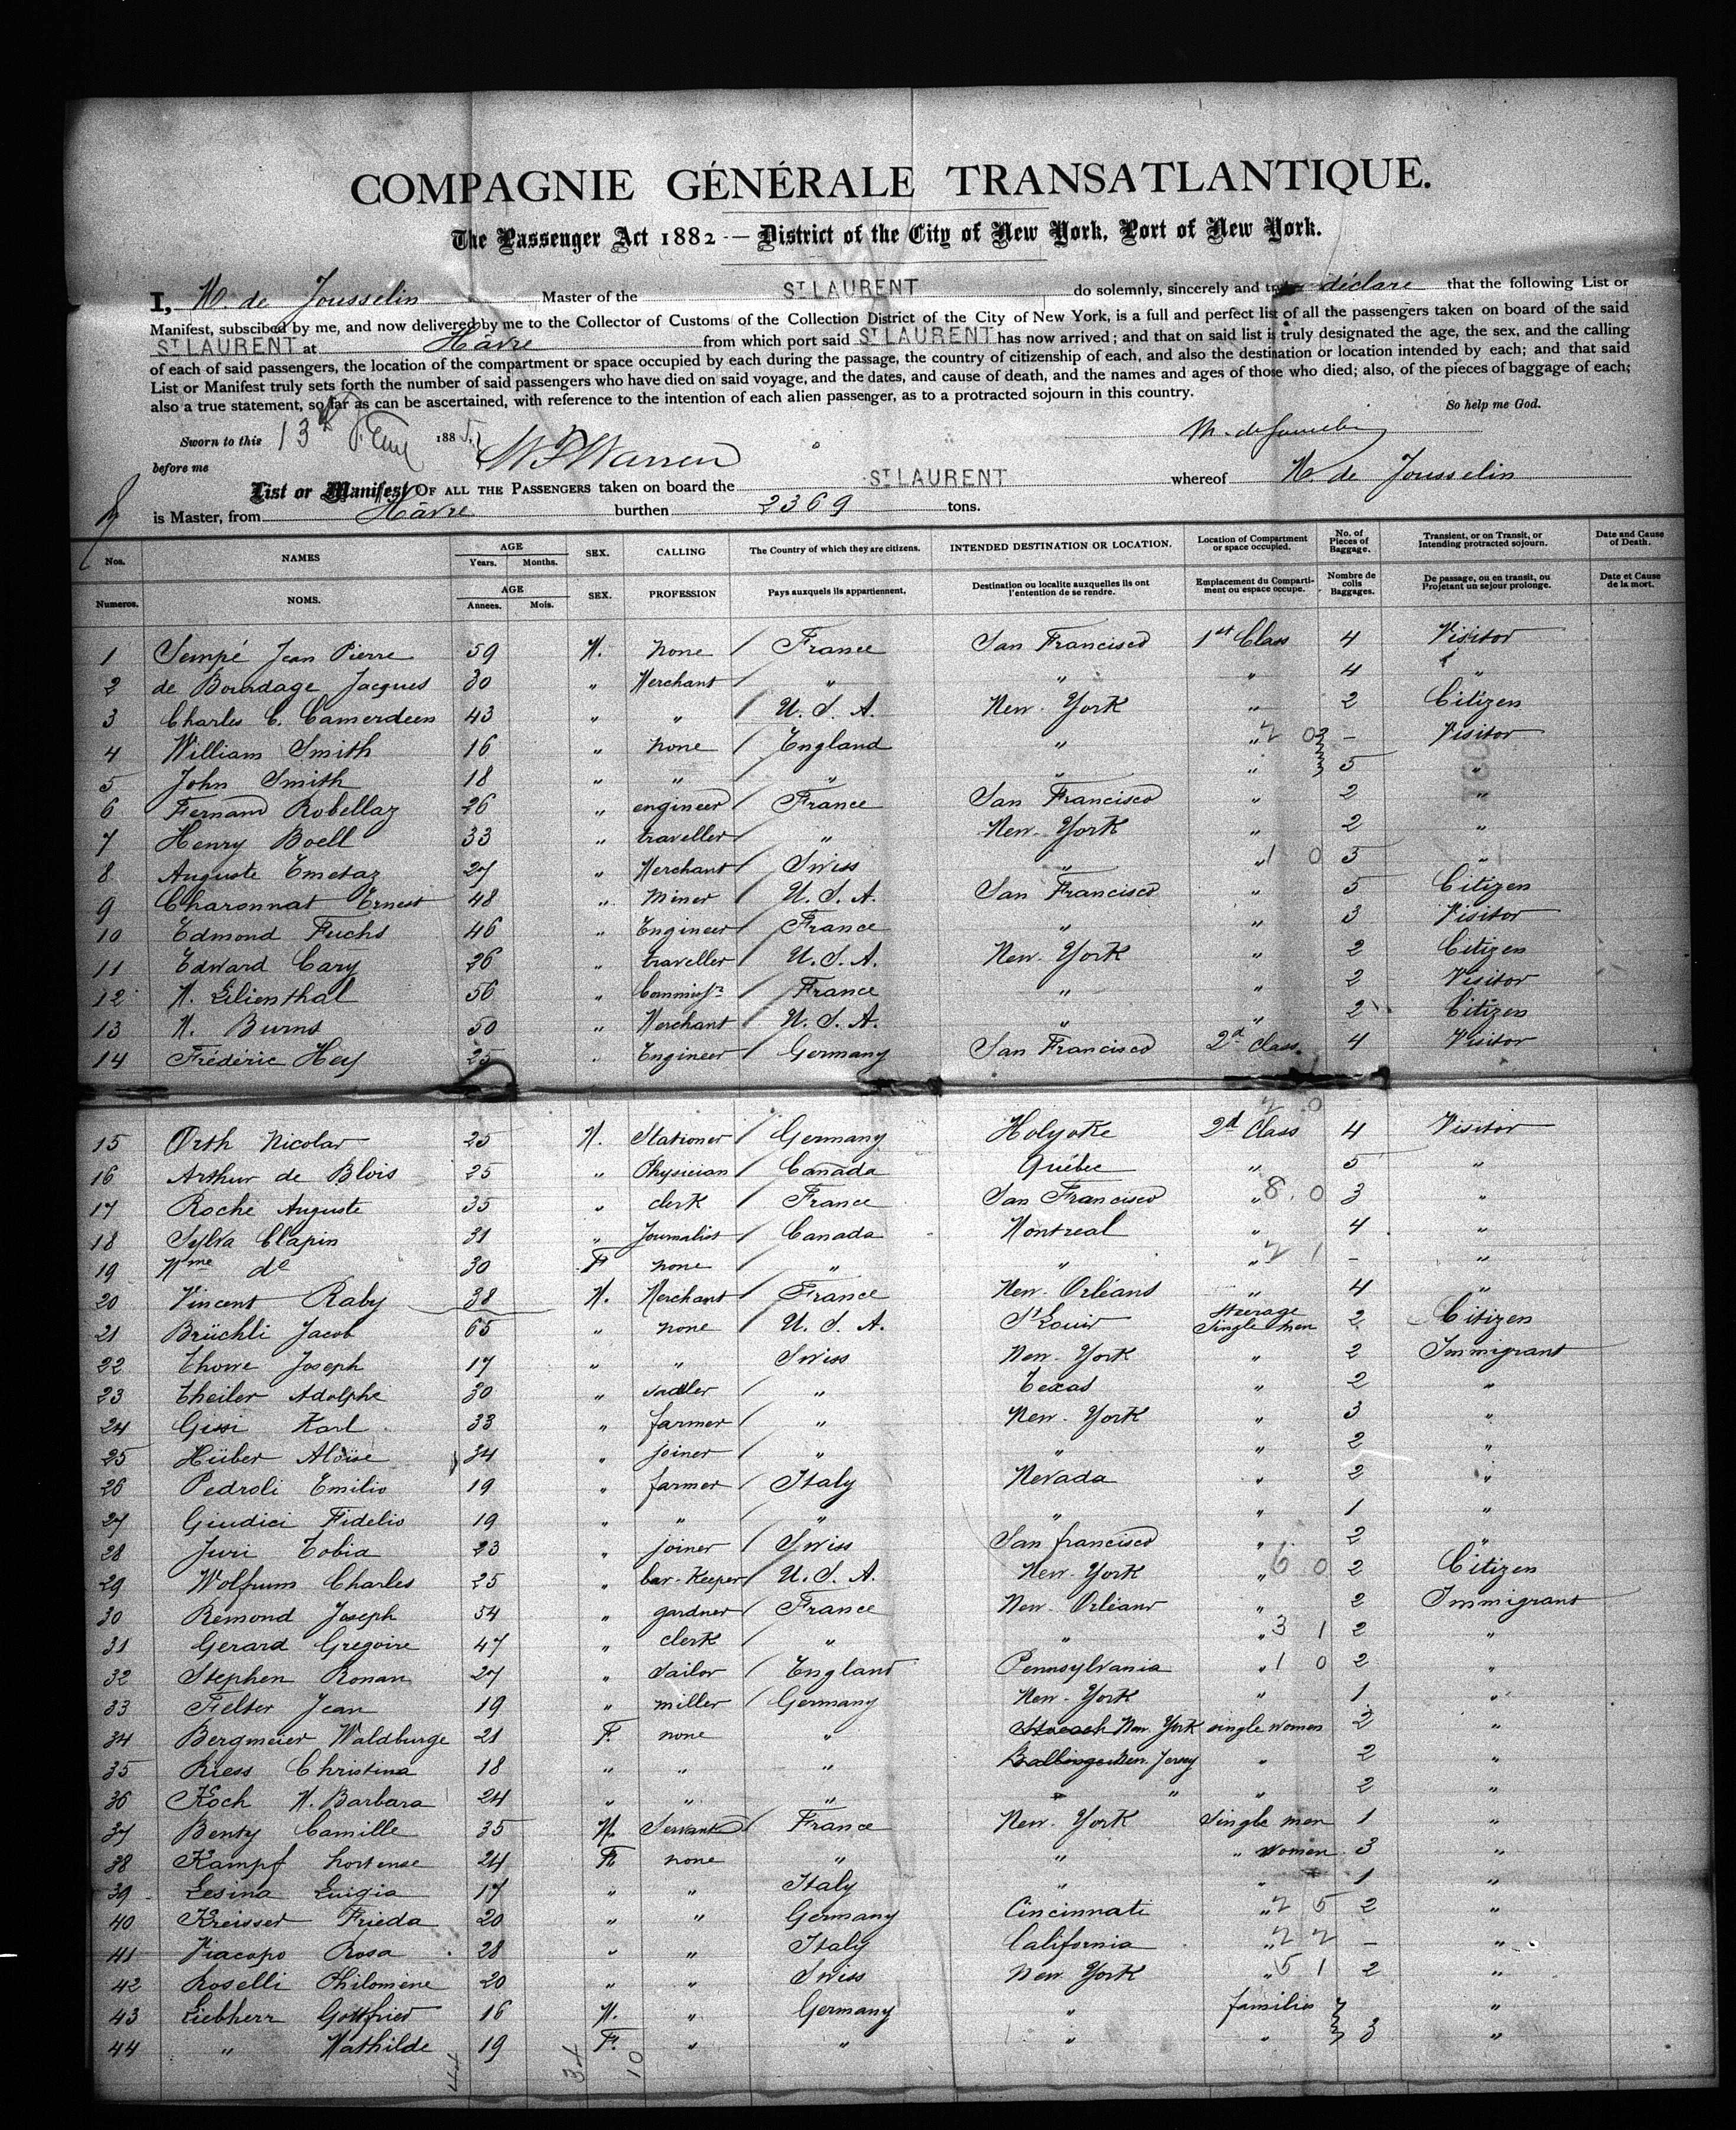 COMPAGNIE GÉNÉRALE TRANSATLANTIQUE.
The Passenger Act 1882 — District of the City of New York, Port of New York.
I, M. de Jousselin Master of the ST LAURENT do solemnly, sincerely and déclare that the following List or
Manifest, subscibed by me, and now delivered by me to the Collector of Customs of the Collection District of the City of New York, is a full and perfect list of all the passengers taken on board of the said
ST LAURENT at Hâvre from which port said ST LAURENT has now arrived; and that on said list is truly designated the age, the sex, and the calling
of each of said passengers, the location of the compartment or space occupied by each during the passage, the country of citizenship of each, and also the destination or location intended by each; and that said
List or Manifest truly sets forth the number of said passengers who have died on said voyage, and the dates, and cause of death, and the names and ages of those who died; also, of the pieces of baggage of each;
also a true statement, so far as can be ascertained, with reference to the intention of each alien passenger, as to a protracted sojourn in this country.
So help me God.
Sworn to this 13th 1885 M. de Jousselin
before me W F Warren
List or Manifest OF ALL THE PASSENGERS taken on board the ST LAURENT whereof M. de Jousselin
is Master, from Hâvre burthen 2369 tons.
Nos. NAMES AGE Years. Months. SEX. CALLING The Country of which they are citizens. INTENDED DESTINATION OR LOCATION. Location of Compartment or space occupied. No. of Pieces of Baggage. Transient, or on Transit, or Intending protracted sojourn. Date and Cause of Death.
Numeros. NOMS. AGE Années. Mois. SEX. PROFESSION Pays auxquels ils appartiennent. Destination ou localite auxquelles ils ont l'entention de se rendre. Emplacement du Comparti- ment ou espace occupe. Nombre de colis Baggages. De passage, ou en transit, ou Projetant un sejour prolonge. Date et Cause de la mort.
1 Sempé Jean Pierre 59 M. none France San Francisco 1st Class 4 Visitor
2 de Bourdage Jacques 30 " Merchant " " " 4 "
3 Charles C. Camerdeen 43 " " U.S.A. New-York " 2 Citizen
4 William Smith 16 " none England " " 2 0 - Visitor
5 John Smith 18 " " " " " 5 "
6 Fernand Robellaz 26 " engineer France San Francisco " 2 "
7 Henry Boell 33 " traveller " New-York " 2 "
8 Auguste Emetaz 27 " Merchant Swiss " " 1 0 3 "
9 Charonnat Ernest 48 " miner U.S.A. San Francisco " 5 Citizen
10 Edmond Fuchs 46 " Engineer France " " 3 Visitor
11 Edward Cary 26 " traveller U.S.A. New-York " 2 Citizen
12 M. Lilienthal 56 " France " " 2 Visitor
13 M. Burns 50 " Merchant U.S.A. " " 2 Citizen
14 Frédéric Hey 25 " Engineer Germany San Francisco 2d Class 4 Visitor
2 0
15 Orth Nicolar 25 M. Stationer Germany Holyoke 2d Class 4 Visitor
16 Arthur de Blois 25 " Physician Canada Québec " 5 "
17 Roche Auguste 35 " clerk France San Francisco " 8 0 3 "
18 Sylva Clapin 31 " Journalist Canada Montreal " 4 "
19 Mme do 30 F. none " " " 2 1 - "
20 Vincent Raby 38 M. Merchant France New-Orléans " 4 "
21 Brüchli Jacob 65 " none U.S.A. St Louis Steerage Single men 2 Citizen
22 Thowe Joseph 17 " " Swiss New-York " 2 Immigrant
23 Theiler Adolphe 30 " sadler " Texas " 2 "
24 Gissi Karl 33 " farmer " New-York " 3 "
25 Hüber Aloïse 34 " joiner " " " 2 "
26 Pedroli Emilio 19 " farmer Italy Nevada " 2 "
27 Giudici Fidelio 19 " " " " " 1 "
28 Juri Tobia 23 " joiner Swiss San francisco " 2 "
29 Wolfrum Charles 25 " bar-Keeper U.S.A. New-York " 6 0 2 Citizen
30 Remond Joseph 54 " gardner France New-Orléans " 2 Immigrant
31 Gerard Gregoire 47 " clerk " " " 3 1 2 "
32 Stephen Ronan 27 " Sailor England Pennsylvania " 1 0 2 "
33 Felter Jean 19 " miller Germany New-York " 1 "
34 Bergmeier Waldburge 21 F. none " New-York single women 2 "
35 Riess Christina 18 " " " New-Jersey " 2 "
36 Koch M. Barbara 24 " " " " " 2 "
37 Benty Camille 35 M. Servant France New-York Single men 1 "
38 Kampf hortense 24 F. none " " " women 3 "
39 Lesina Luigia 17 " " Italy " " 1 "
40 Kreisser Frieda 20 " " Germany Cincinnati " 2 5 2 "
41 Viacopo Rosa 28 " " Italy California " 2 2 - "
42 Roselli Philomène 20 " " Swiss New-York " 5 1 2 "
43 Liebherr Gottfried 16 M. " Germany " families "
44 " Mathilde 19 F. " " " " 3 "
44 34 10